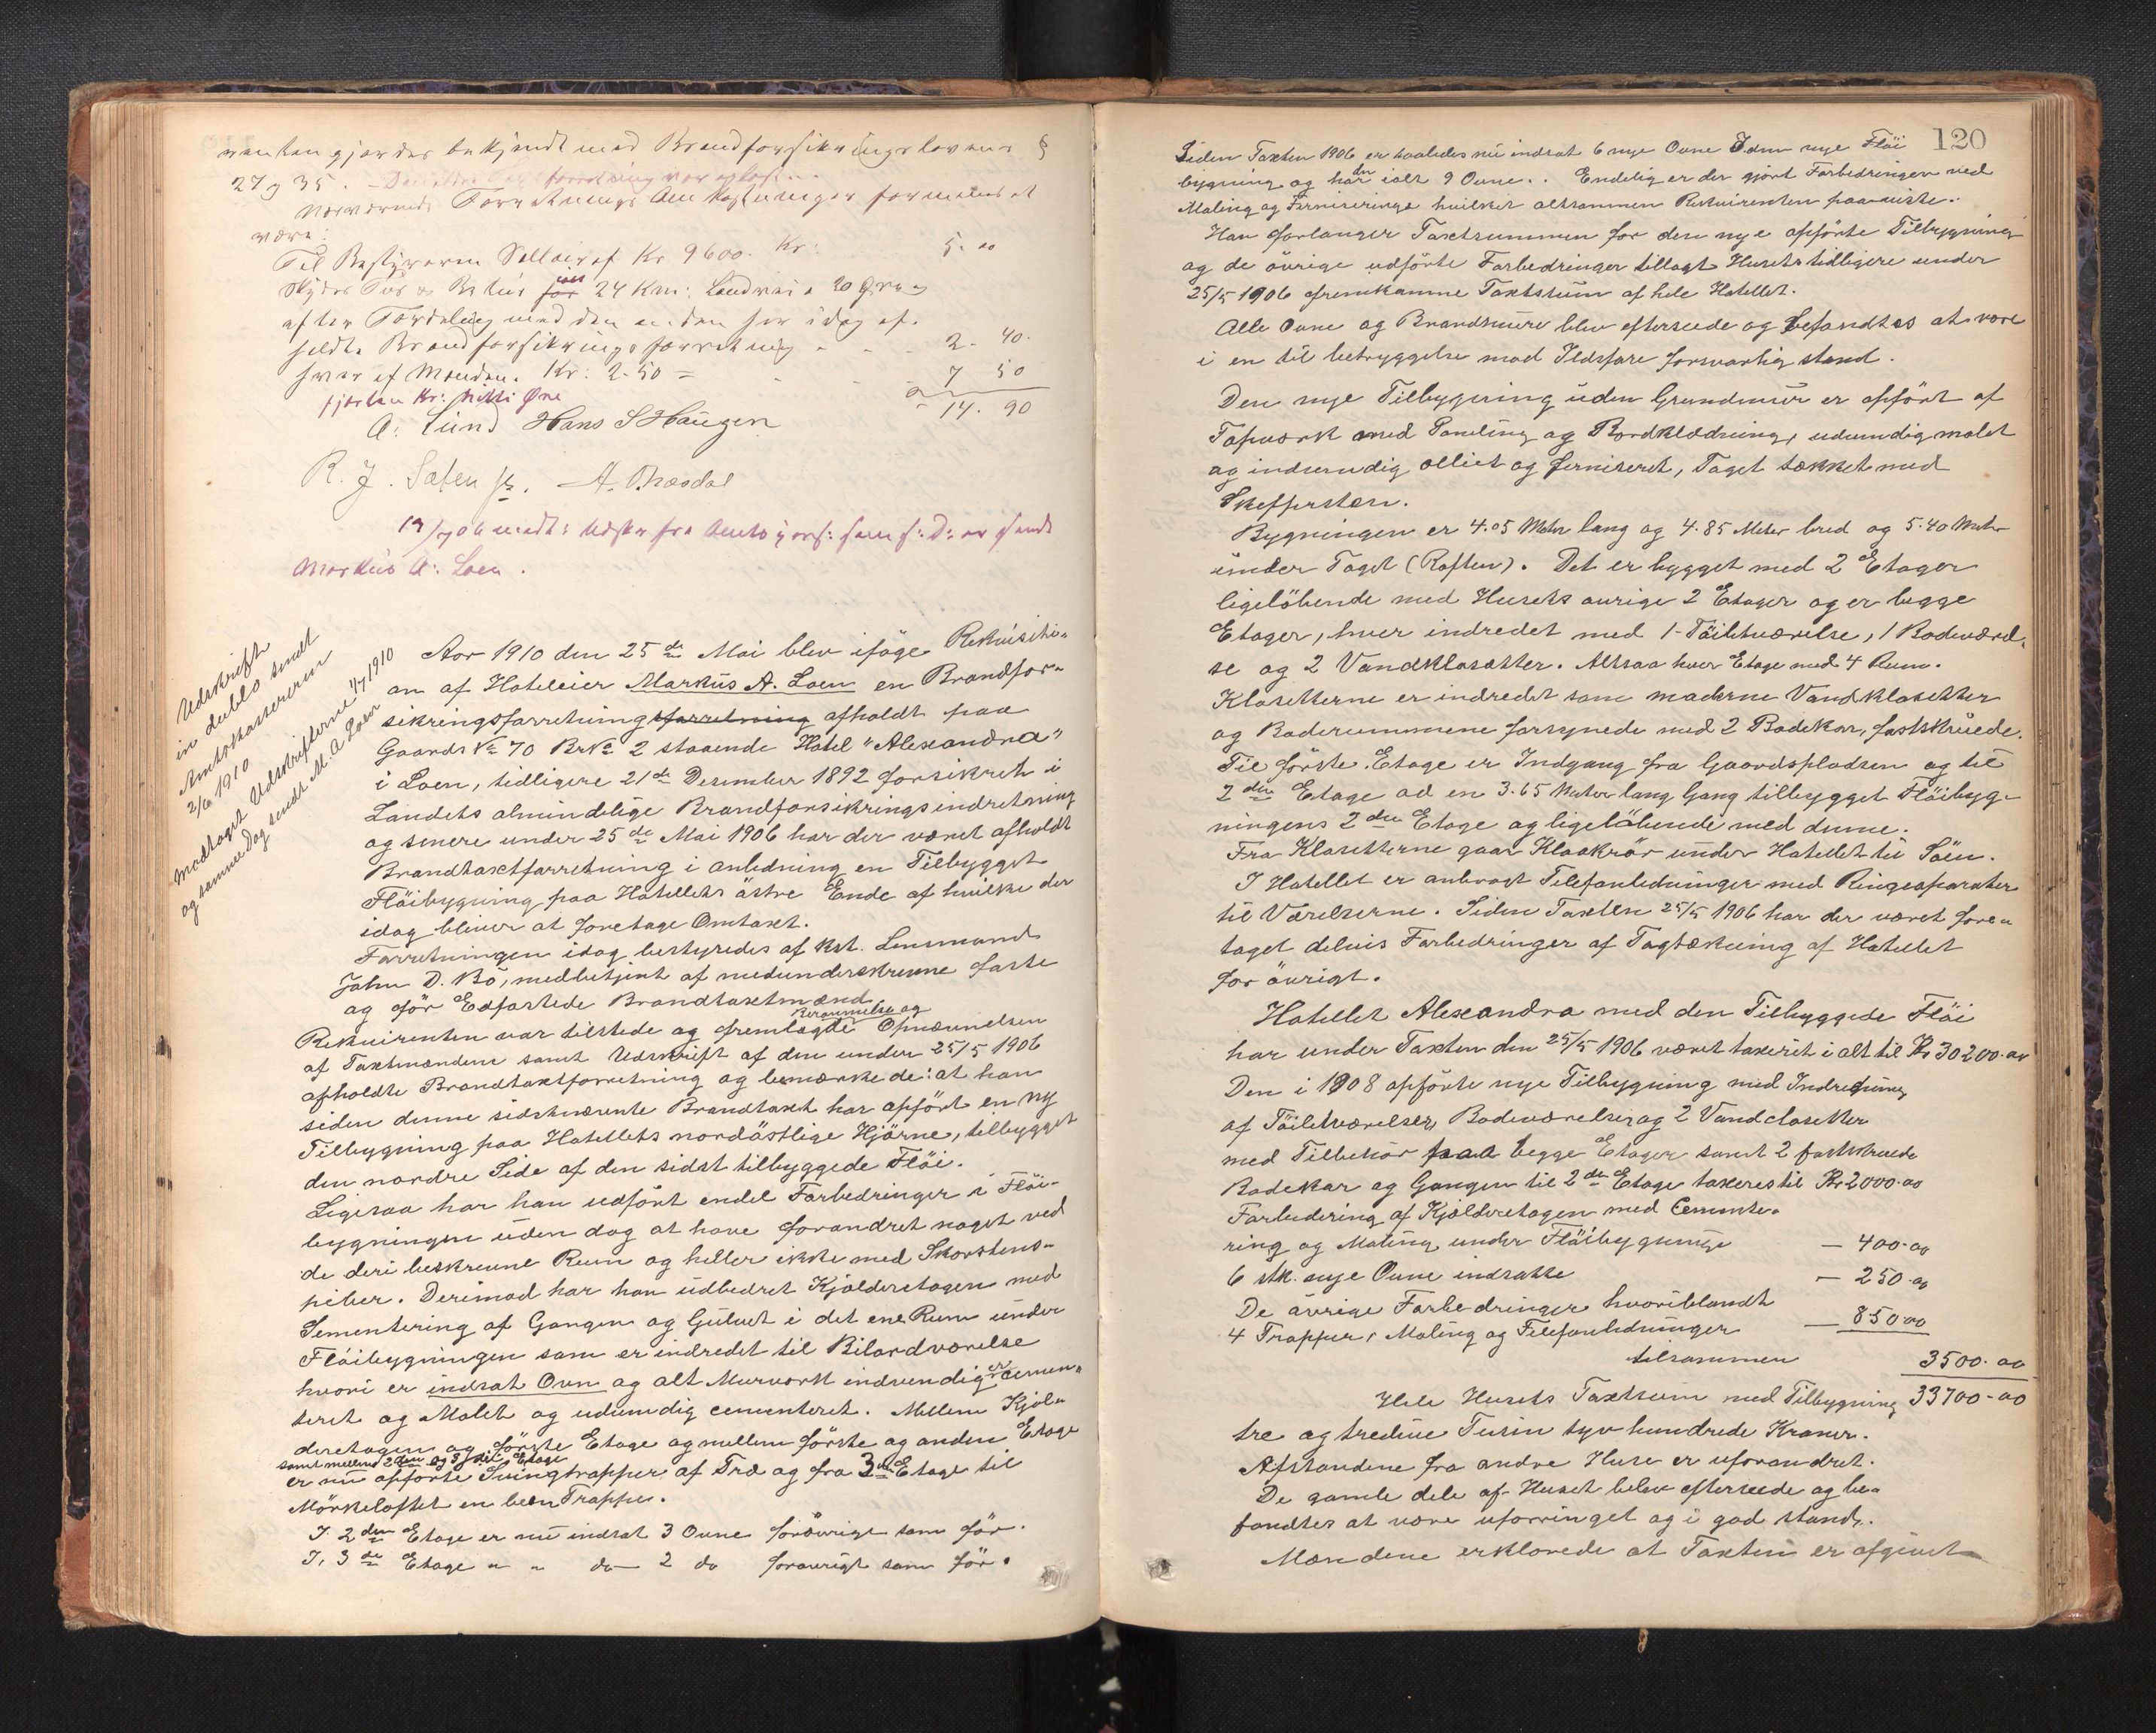 renten gjordes bekjendt med Brandforsikringslovens §
27 og 35.
Nærværende Forretnings Omkostninger formenes at
være:
Til Bestyreren Sallair af Kr 9600. Kr: 5.00
Skyds Tur & Retur 24 Km: Landvei a 20 Øre
efter Fordeling med den anden her idag af-
holdte Brandforsikringsforretning - - - 2. 40.
hver af Mændene. Kr: 2.50 = - - - 7 50
fjorten Kr: nitti Øre - 14. 90
A. Lund Hans S Haugen
R. J. Sæten A. Bræsdal
19/7 06 modt: Udskr fra Amts
Markus A: Loen.
Udskrifter
in dublo sendt
Amtskassereren
2/6 1910
Modtaget Udskrifterne 1/7 1910
og samme Dag sendt M. A Loen
Aar 1910 den 25de Mai blev ifølge Rekvisiti-
on af Hoteleier Markus A. Loen en Brandfor-
sikringsforretningsforretning afholdt paa
Gaards No 70 BrNo 2 staaende Hotel "Alexandra"
i Loen, tidligere 21de Desember 1892 forsikret i
Landets almindelige Brandforsikringsindretning
og senere under 25de Mai 1906 har der været afholdt
Brandtaxtforretning i anledning en Tilbygget
Flöibygning paa Hotellets östre Ende af hvilke der
idag bliver at foretage Omtaxt.
Forretningen idag bestyredes af Kst. Lensmand
John D. Bö, medbetjent af medunderskrevne faste
og för Edfæstede Brandtaxtmænd
Rekvirenten var tilstede og fremlagde Berammelse og Opnævnelsen
af Taxtmændene samt Udskrift af den under 25/5 1906
afholdte Brandtaxtforretning og bemærkede: at han
siden denne sidstnævnte Brandtaxt har opfört en ny
Tilbygning paa Hotellets nordöstlige Hjörne, tilbygget
den nordre Side af den sidst tilbyggede Flöi.
Ligesaa har han udfört endel Forbedringer i Flöi-
bygningen uden dog at have forandret noget ved
de deri beskrevne Rum og heller ikke med Skorstens-
piber. Derimod har han udbedret Kjælderetagen med
Sementering af Gangen og Gulvet i det ene Rum under
Flöibygningen som er indredet til Bilardværelse
hvori er indsat Ovn og alt Murverk indvendig er cemen-
teret og Malet og udvendig cementeret. Mellem Kjæl-
deretagen og förste Etage og mellem förste og anden Etage
samt mellem 2den og 3die Etage
er nu opförte Svingtrapper af Træ og fra 3die Etage til
Mörkeloftet en been Trappe.
I 2den Etage er nu indsat 3 Ovne forövrigt som för.
I, 3de Etage " " do 2 do foravrigt som för.
120
Siden Taxten 1906 er saaledes nu indsat 6 nye Ovne I den nye Flöi
bygning og har den ialt 9 Ovne. Endelig er der gjort Forbedringer ved
Maling og Ferniseringe hvilket altsammen Rekvirenten paaviste.
Han forlanger Taxtsummen for den nye opförte Tilbygning
og de övrige udförte Forbedringer tillagt Husets tidligere under
25/5 1906 fremkomne Taxtsum af hele Hotellet.
Alle Ovne og Brandmure blev efterseede og befandtes at være
i en til betryggelse mod Ildsfare forsvarlig stand.
Den nye Tilbygning uden Grundmur er opfört af
Tapverk med Paneling og Bordklædning, udvendig malet
og indvendig olliet og ferniseret, Taget tækket med
Skeffersten.
Bygningen er 4.05 Meter lang og 4.85 Meter bred og 5.40 Meter
under Taget (Raften). Det er bygget med 2 Etager
ligelöbende med Husets øvrige 2 Etager og er begge
Etager, hver indredet med 1 Töiletværelse, 1 Badeværel-
se og 2 Vandklosetter. Altsaa hver Etage med 4 Rum.
Klosetterne er indredet som moderne Vandklosetter
og Baderummene forsynede med 2 Badekar, fastskruede.
Til förste Etage er Indgang fra Gaardspladsen og til
2den Etage ad en 3.65 Meter lang Gang tilbygget Flöibyg-
ningens 2den Etage og ligelöbende med denne.
Fra Klosetterne gaar Kloakrör under Hotellet til Söen.
I Hotellet er anbragt Telefonledninger med Ringeaparater
til Værelserne. Siden Taxten 25/5 1906 har der været fore-
taget delvis Forbedringer af Tagtækning af Hotellet
for övrigt.
Hotellet Alexandra med den Tilbyggede Flöi
har under Taxten den 25/5 1906 været taxeret i alt til Kr 30200.00
Den i 1908 opförte nye Tilbygning med Indredning
af Töiletværelser, Badeværelser og 2 Vandclosetter
med Tilbehör paa begge Etager samt 2 fastskruede
Badekar og Gangen til 2de Etage taxeres til Kr 2000.00
Forbedering af Kjælderetagen med Cemente-
ring og Maling under Flöibygninge — 400.00
6 stk. nye Ovne indsatte — 250.00
De övrige Forbedringer hvoriblandt
4 Trapper, Maling og Telefonledninger — 850.00
tilsammen 3500.00
Hele Husets Taxtsum med Tilbygning 33700.00
tre og tredive Tusin syv hundrede Kroner.
Afstandene fra andre Huse er uforandret.
De gamle dele af Huset blev efterseede og be-
fandtes at være uforringet og i god stand.
Mændene erklærede at Taxten er afgivet